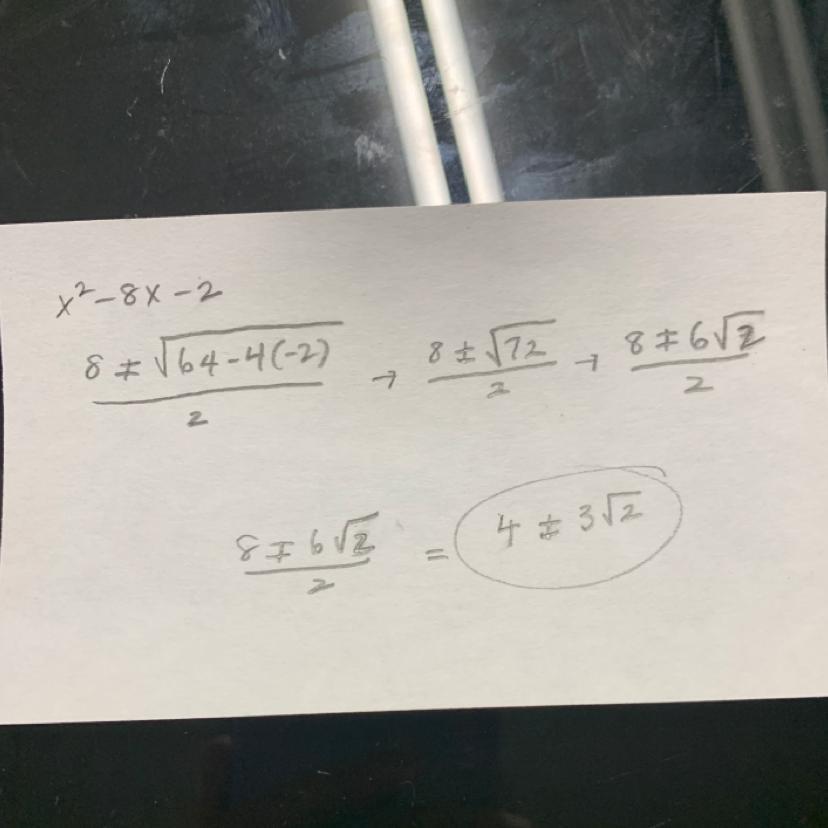 x² - 8x - 2
(8 ± √(64 - 4(-2)))/2 → (8 ± √72)/2 → (8 ± 6√2)/2
(8 ± 6√2)/2 = 4 ± 3√2